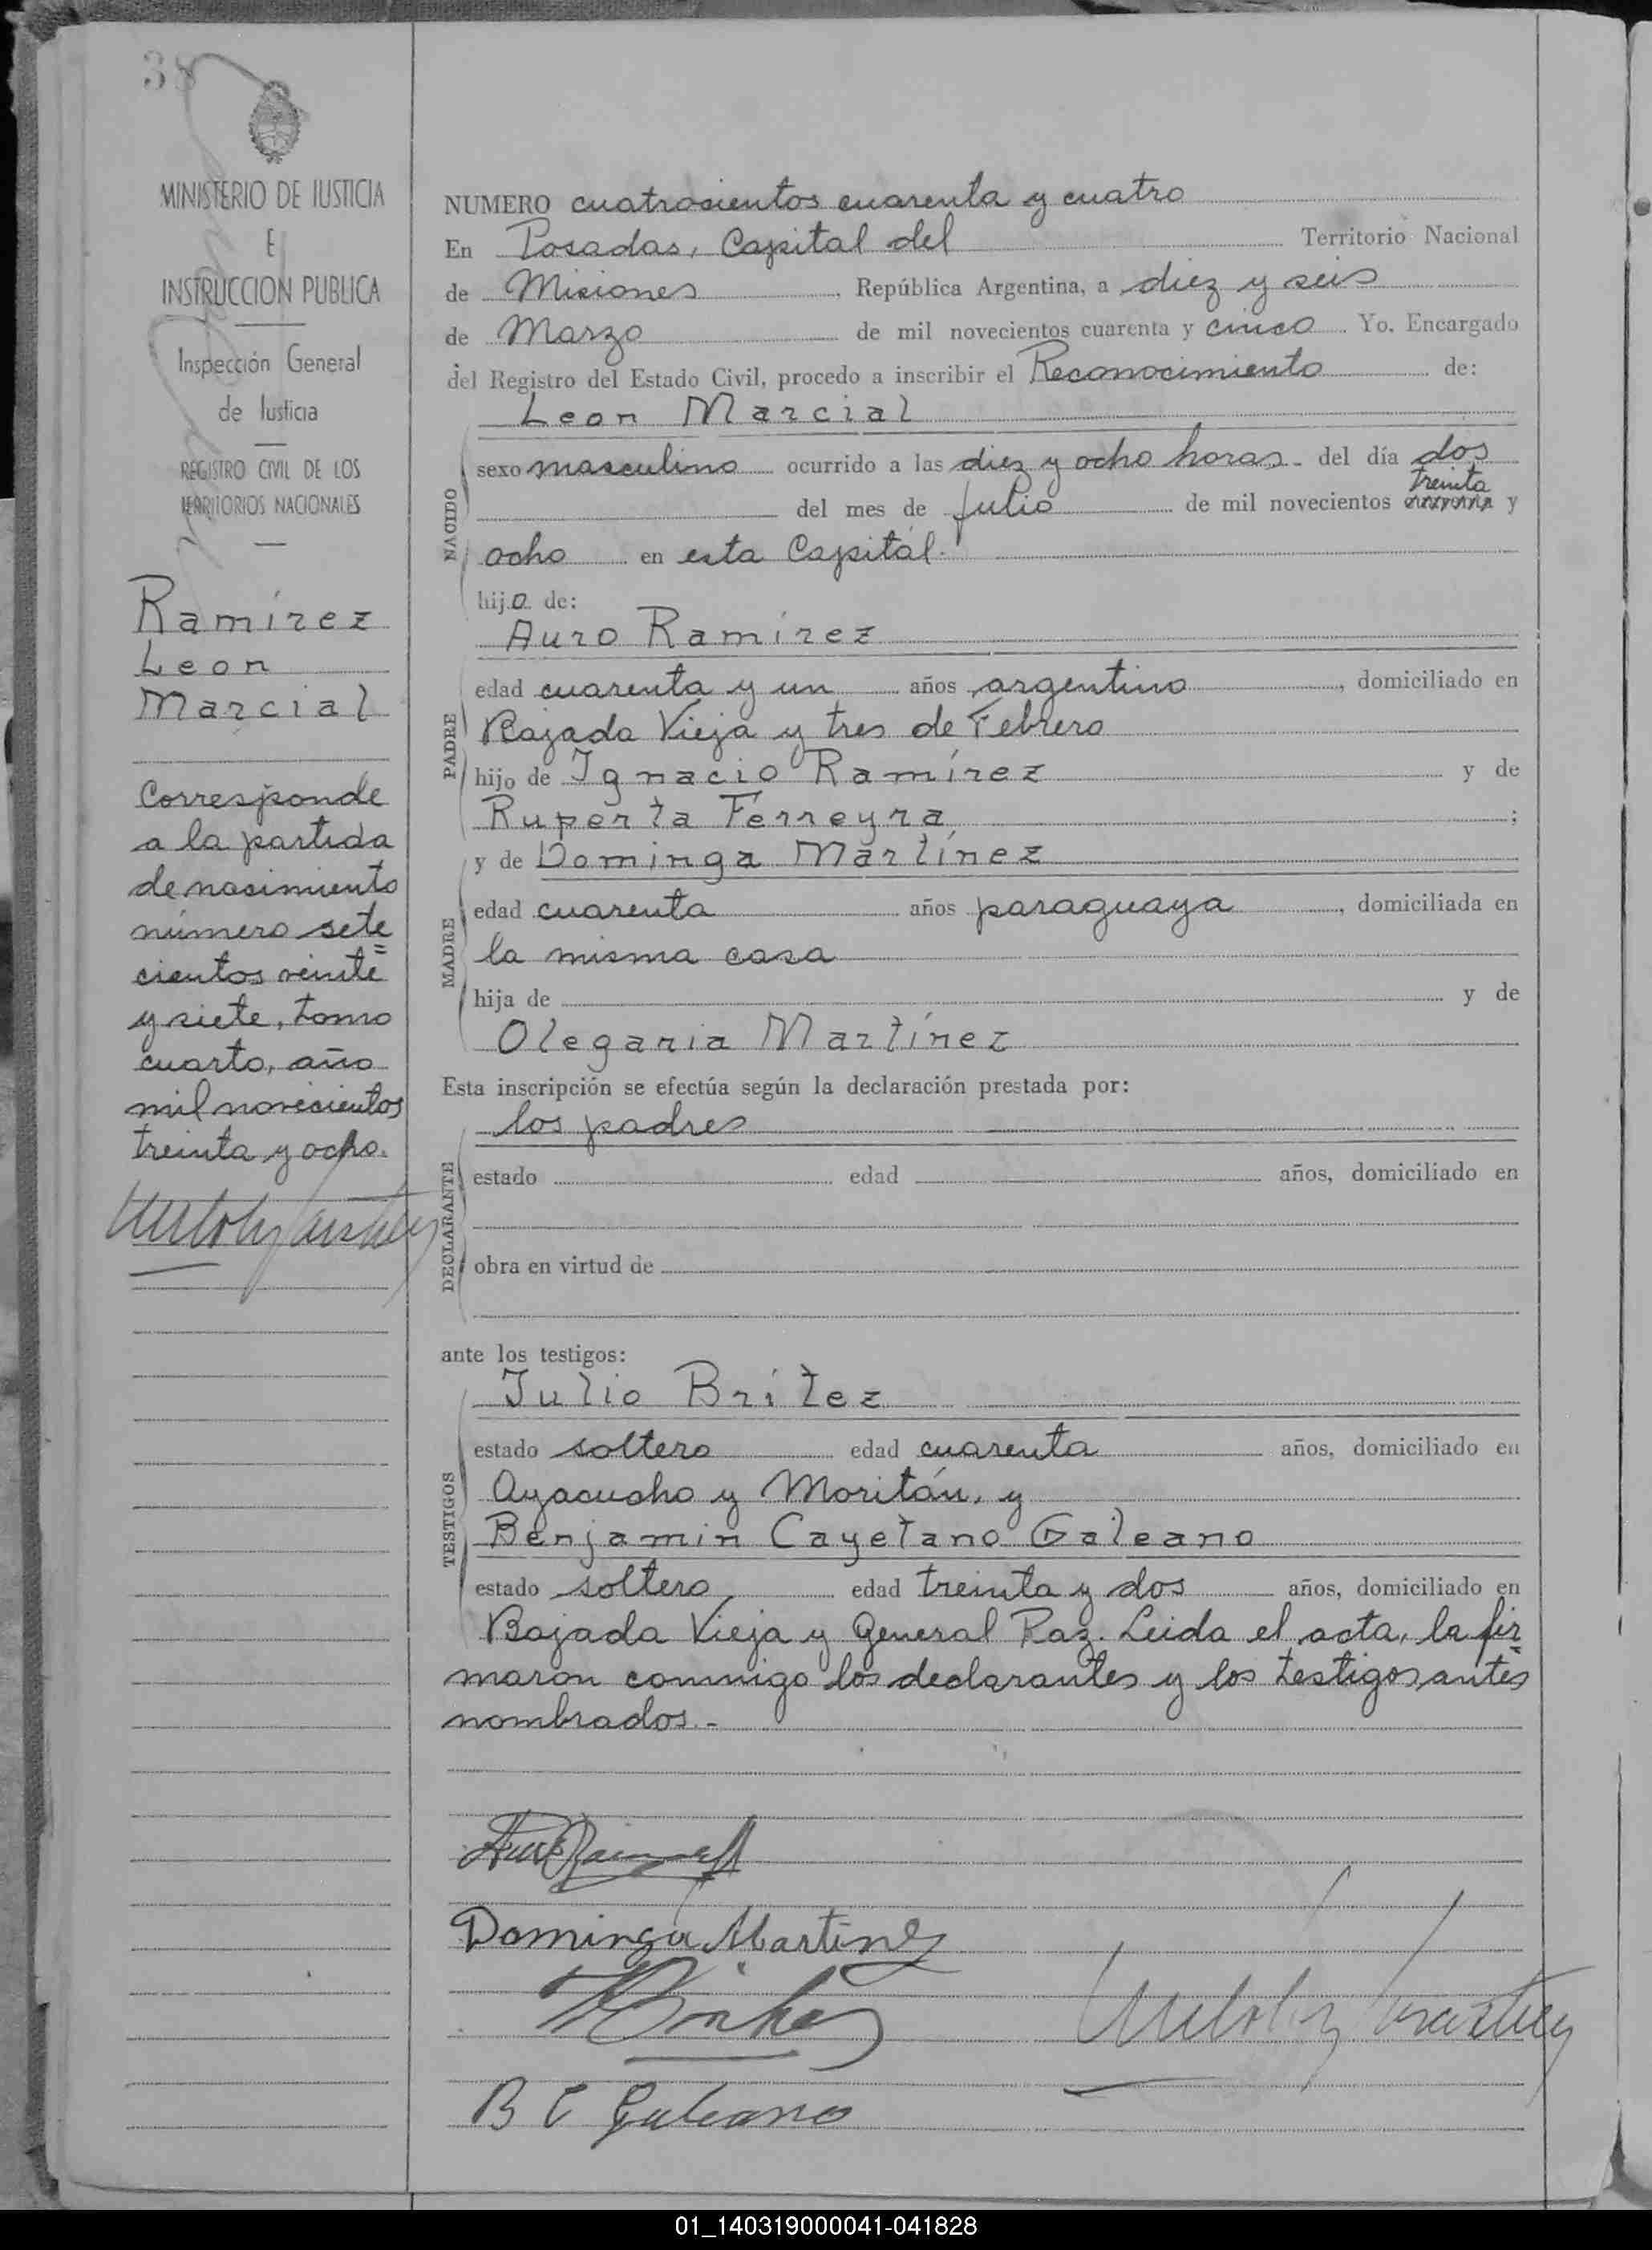 38
MINISTERIO DE JUSTICIA
E
INSTRUCCION PUBLICA
Inspección General
de Justicia
REGISTRO CIVIL DE LOS
TERRITORIOS NACIONALES
Ramírez
Leon
Marcial
Corresponde
a la partida
de nasimiento
número sete
cientos veinte
y siete, tomo
cuarto, año
mil novecientos
treinta y ocho.
NUMERO cuatrosientos cuarenta y cuatro
En Posadas, Capital del Territorio Nacional
de Misiones, República Argentina, a diez y seis
de Marzo de mil novecientos cuarenta y cinco. Yo, Encargado
del Registro del Estado Civil, procedo a inscribir el Reconocimiento de:
Leon Marcial
NACIDO
sexo masculino ocurrido a las diez y ocho horas del día dos
treinta
del mes de Julio de mil novecientos cuarenta y
ocho en esta Capital.
hijo de:
PADRE
Auro Ramírez
edad cuarenta y un años argentino, domiciliado en
Bajada Vieja y tres de Febrero
hijo de Ignacio Ramírez y de
Ruperta Ferreyra;
MADRE
y de Dominga Martínez
edad cuarenta años paraguaya, domiciliada en
la misma casa
hija de y de
Olegaria Martínez
Esta inscripción se efectúa según la declaración prestada por:
DECLARANTE
los padres
estado edad años, domiciliado en
obra en virtud de
ante los testigos:
TESTIGOS
Julio Brítez
estado soltero edad cuarenta años, domiciliado en
Ayacucho y Moritán, y
Benjamin Cayetano Galeano
estado soltero edad treinta y dos años, domiciliado en
Bajada Vieja y General Paz. Leida el acta, la fir=
maron conmigo los declarantes y los testigos antes
nombrados.-
Dominga Martinez
B C Galeano
01_140319000041-041828